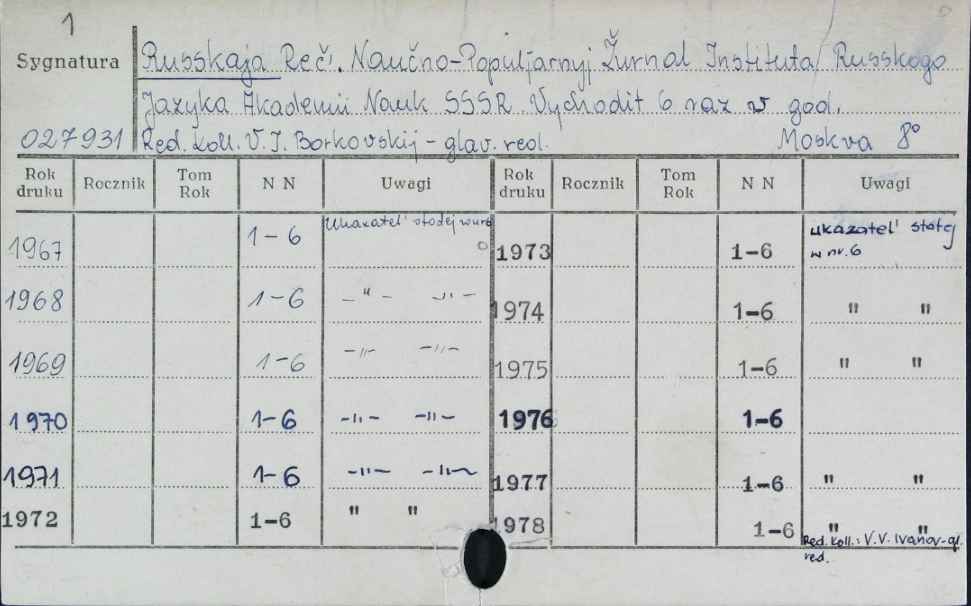 1
Sygnatura
Russkaja Reč'. Naučno-Populjarnyj Žurnal Instituta Russkogo
Jazyka Akademii Nauk SSSR. Vychodit 6 raz v god.
027931 Red. koll. V. I. Borkovskij - glav. red. Moskva 8°
Rok druku Rocznik Tom Rok N N Uwagi Rok druku Rocznik Tom Rok N N Uwagi
1967 1-6 Ukazatel' statej w nr 6 1973 1-6 ukazatel' statej
w nr. 6
1968 1-6 -"- -"- 1974 1-6 " "
1969 1-6 -"- -"- 1975 1-6 " "
1970 1-6 -"- -"- 1976 1-6
1971 1-6 -"- -"- 1977 1-6 " "
1972 1-6 " " 1978 1-6 " "
Red. koll.: V.V. Ivanov-gl.
red.